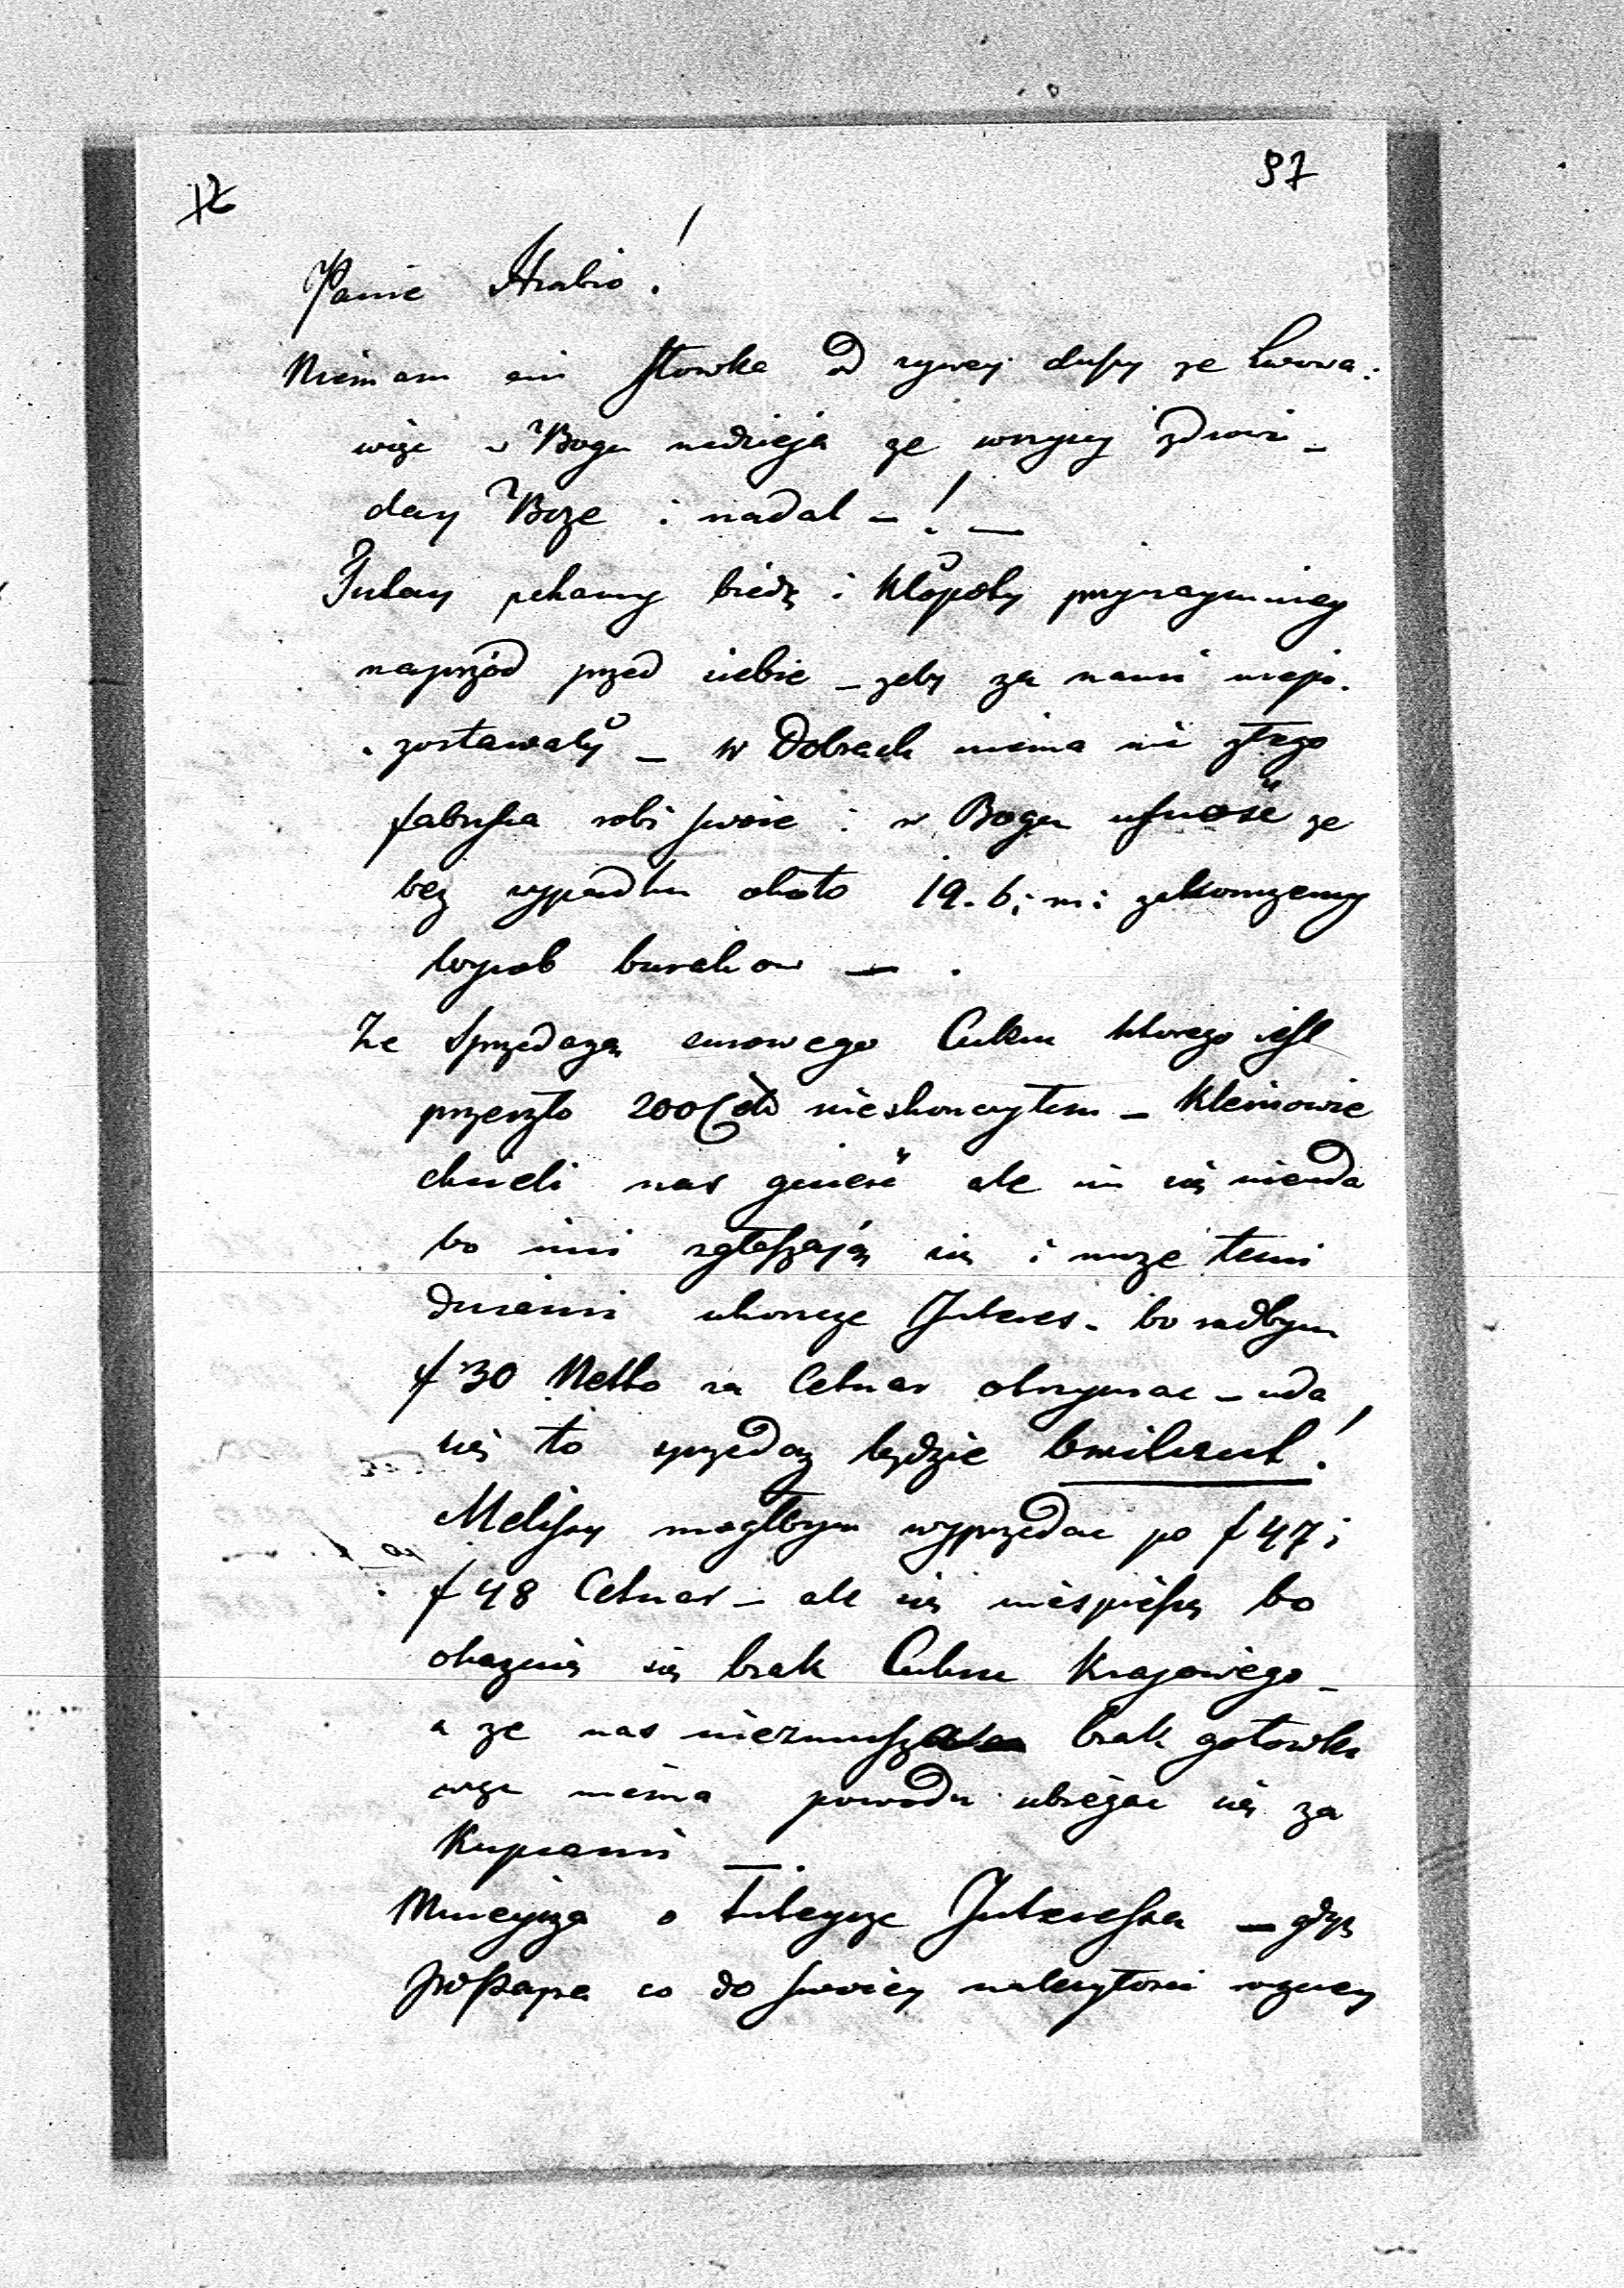 97
Panie Hrabio!
Niemam ani słowka od zywey duszy ze Lwowa:
więc w Bogu nadzieja ze wszyscy zdrowi –
day Boze i nadal – ! –
Tutay pchamy biedę i kłopoty przynaymniey
naprzód przed siebie – zeby za nami
zostawały – w Dobrach niema nic złego
fabryka robi swoie i w Bogu ufność ze
bez wypadku około 19. b: m: zakonczemy
wyrob burakow – .
Ze Sprzedazą surowego Cukru ktorego iest
przeszło 200 nieskonczyłem – Kleinowie
chcieli nas gnieść ale im się nieuda
bo inni zgłaszają się i moze temi
dniami ukoncze Interes – bo radbym
f 30 Netto za Cetnar otrzymac – uda
się to sprzedaz będzie brillant!
Melisy mogłbym wyprzedac po f 47 i
f 48 Cetnar – ale się niespieszę bo
okazuie się brak Cukru Krajowego –
a ze nas niezmusza brak gotowki
więc niema powodu ubiegac się za
Kupcami – .
Mnieysza o tuteysze Interessa – gdyz
co do swoiey nalezytosci